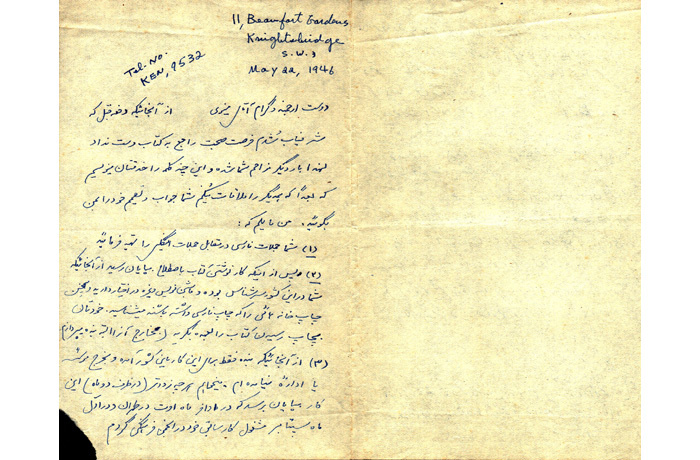 11, Beaufort Gardens
Knightsbridge
S.W.3
Tel. No.
KEN, 9532
May 22, 1946
دوست ارجمند گرام آقای مینوی از آنجائیکه دفعه قبل که
شرفیاب شدم فرصت صحبت راجع به کتاب دست نداد
لهذا بار دیگر مزاحم شما شده و این چند کلمه را خدمتتان مینویسم
که بعداً که همدیگر را ملاقات میکنیم شما جواب و تصمیم خود را بمن
بگوئید. من مایلم که:
(۱) شما جملات فارسی در مقابل جملات انگلیسی را تهیه فرمائید
(۲) پس از اینکه کار نوشتن کتاب باصطلاح بپایان رسید از آنجائیکه
شما در این کشور سرشناس بوده و ماشین نویس ویژه در اختیار دارید و همچنین
چاپ خانه هائی را که چاپ فارسی داشته باشند میشناسید خودتان
بچاپ رسیدن کتاب را بعهده بگیرید (مخارج آنرا البته بنده میپردازم
(۳) از آنجائیکه بنده فقط برای این کار باین کشور آمده و بخرج
یا اداره نیامده ام میخواهم هر چه زودتر (در ظرف دو ماه) این
کار بپایان برسد که در اواخر ماه اوت در طهران و در اول
ماه سپتامبر مشغول کار سابق خود در انجمن فرهنگی گردم